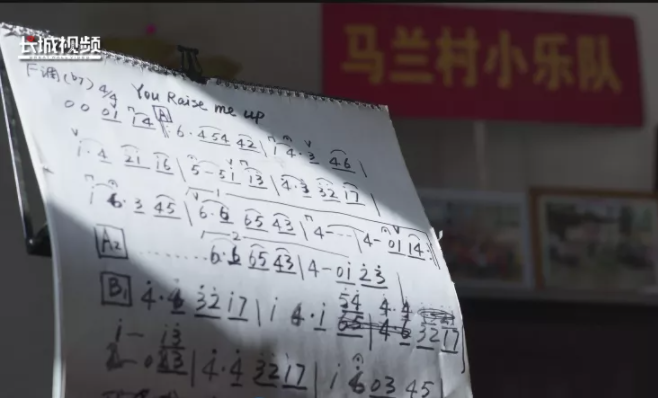 长城视频
马兰村小乐队
F调(b7) 4/4 You Raise me up
0 0 01 14 | A 6 · 454 42 | 1 4 · 3 46 |
1 · 4 21 16 | 5 - 51 13 | 4 · 3 32 17 |
1 6 · 3 45 | 6 · 6 65 43 | 4 - - - | 4 - 01 14 :
A2 ......... 6 · 6 65 43 | 4 - 01 23 |
B1 4 · 4 32 17 | 1 4 · 1 54 4 · 4
1 - 13 65 | 4 6 32 17
2 - 023 | 4 · 4 32 17 | 1 6 03 45 |